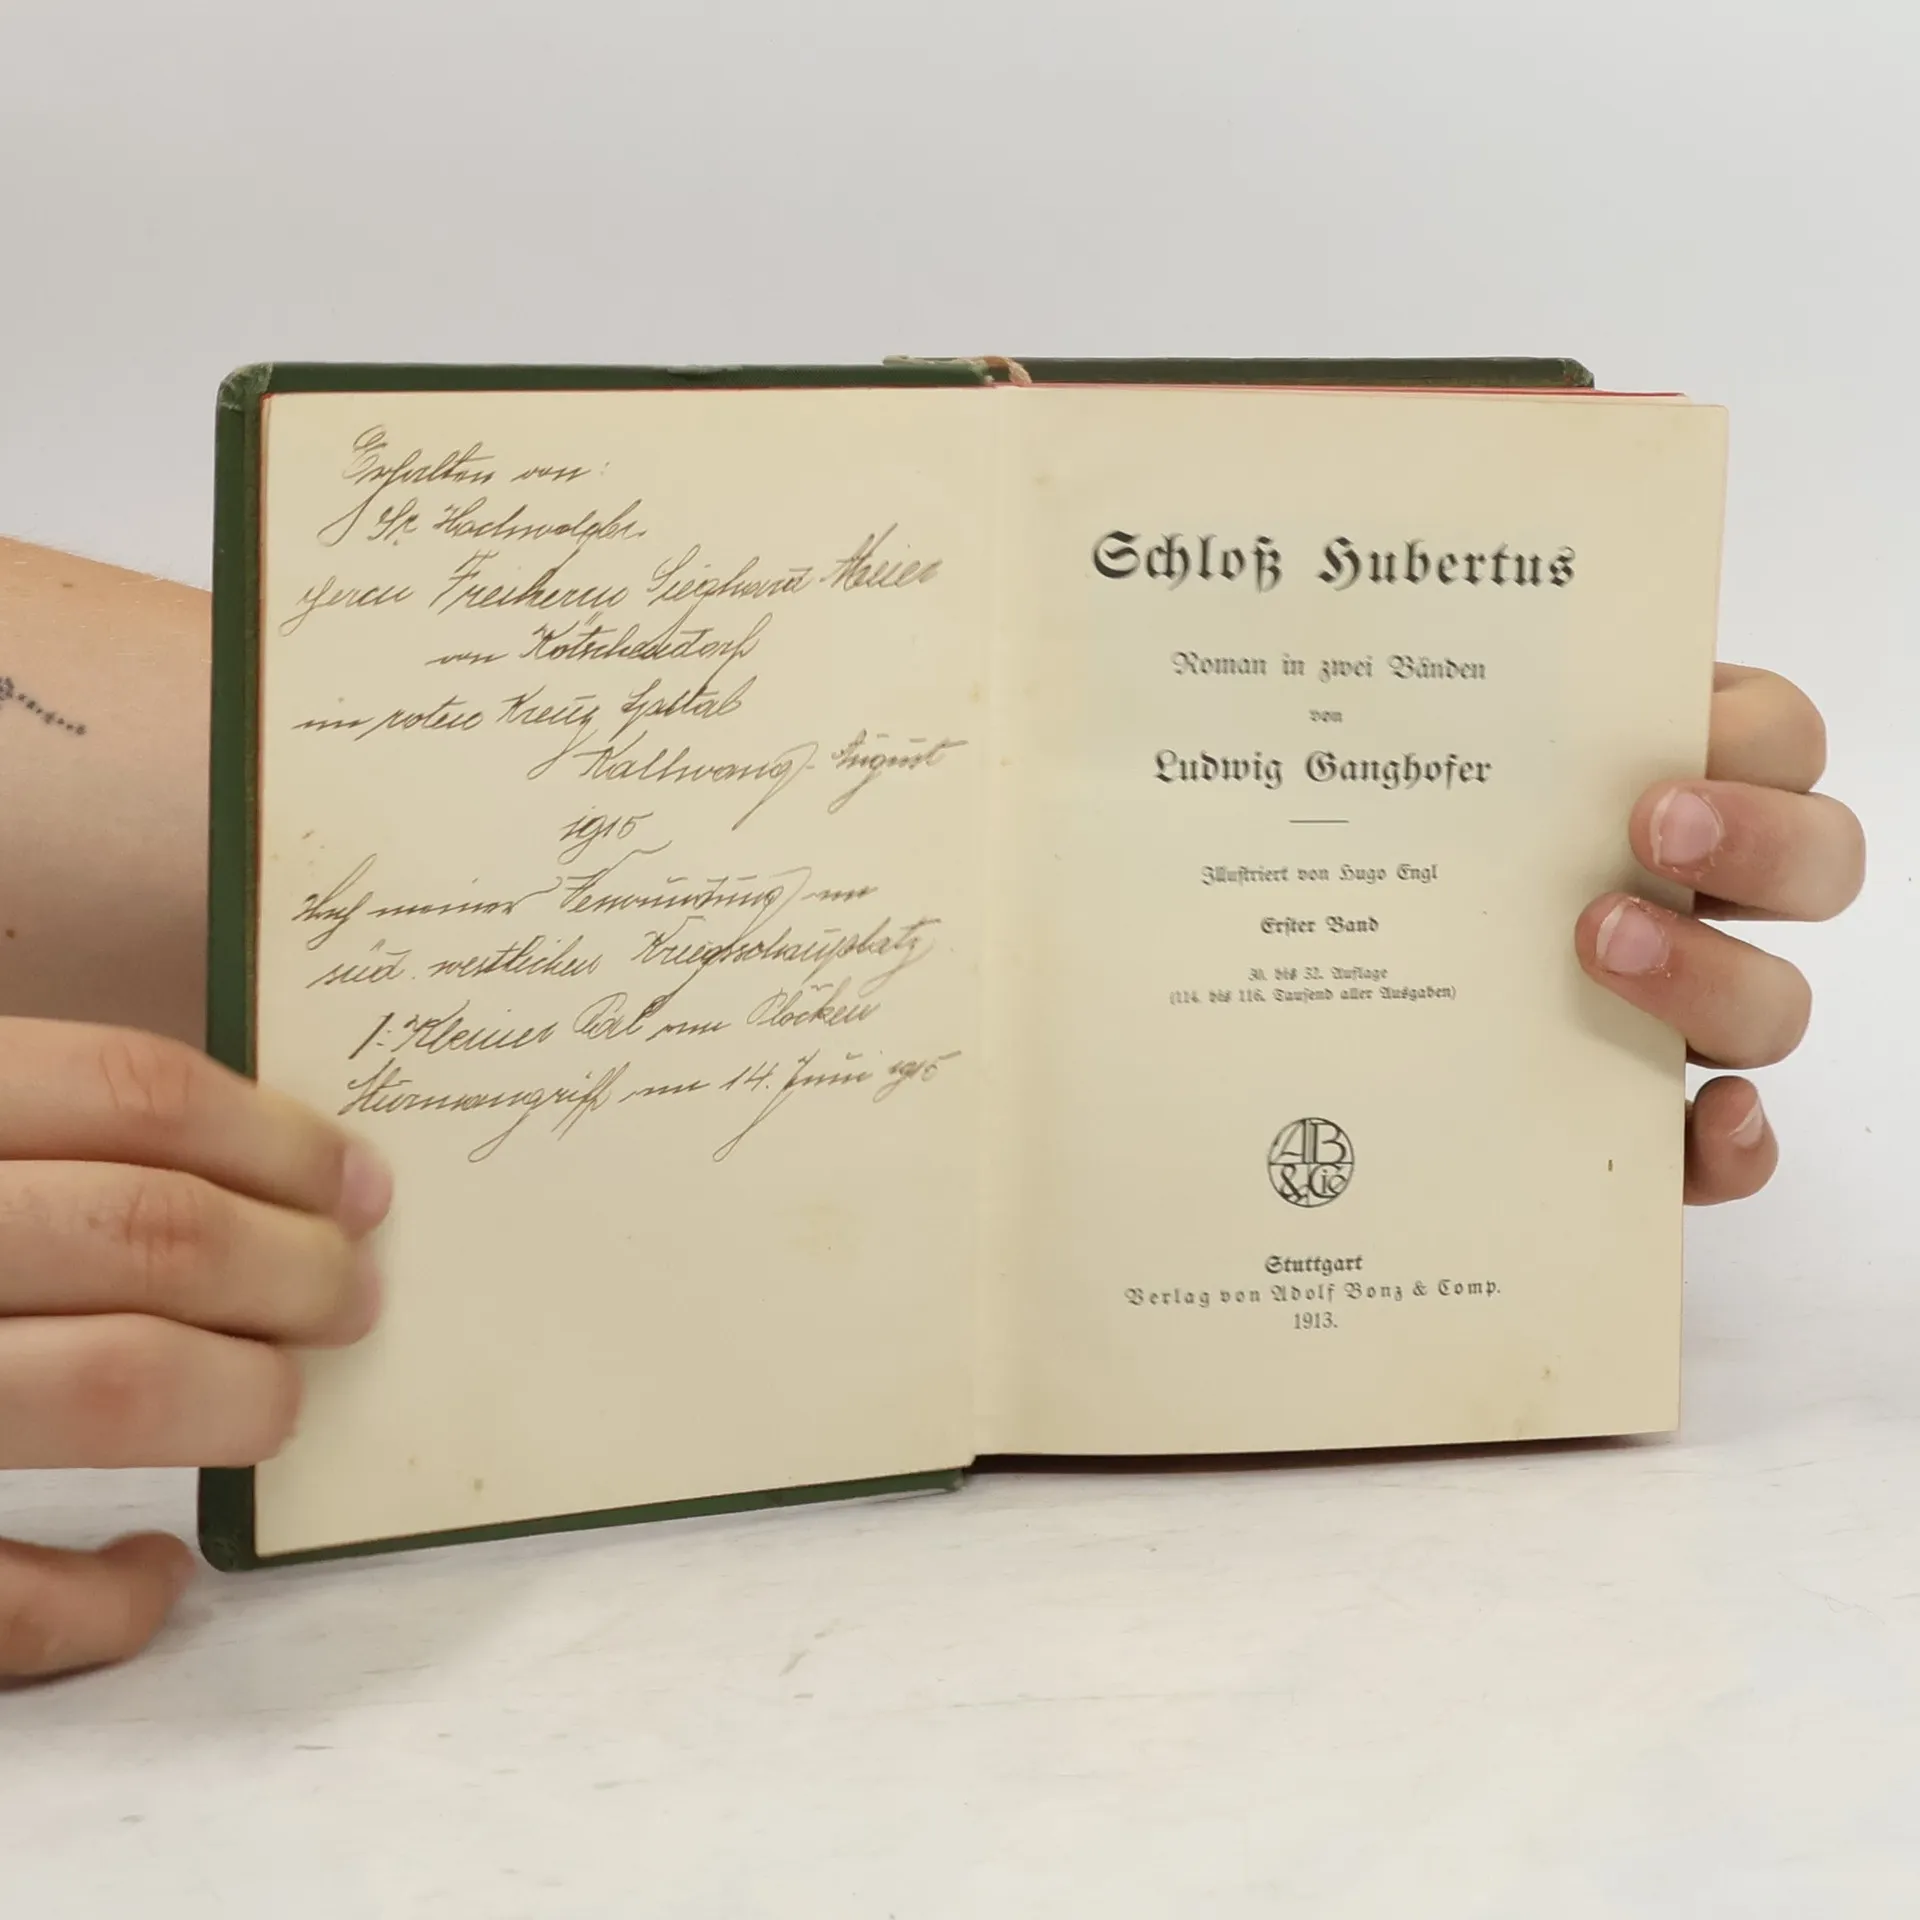 Erhalten von:
Sr. Hochwolgbr.
Herrn Freiherrn Sieghard Meier
von Kötschendorf
im roten Kreuz Spital
Kallwang - August
1915
Nach meiner Verwundung im
süd. westlichen Kriegsschauplatz
Kleiner Pal am Plöcken
Sturmangriff am 14. Juni 1915
Schloß Hubertus
Roman in zwei Bänden
von
Ludwig Ganghofer
Illustriert von Hugo Engl
Erster Band
30. bis 32. Auflage
(114. bis 116. Tausend aller Ausgaben)
AB
& Cie
Stuttgart
Verlag von Adolf Bonz & Comp.
1913.